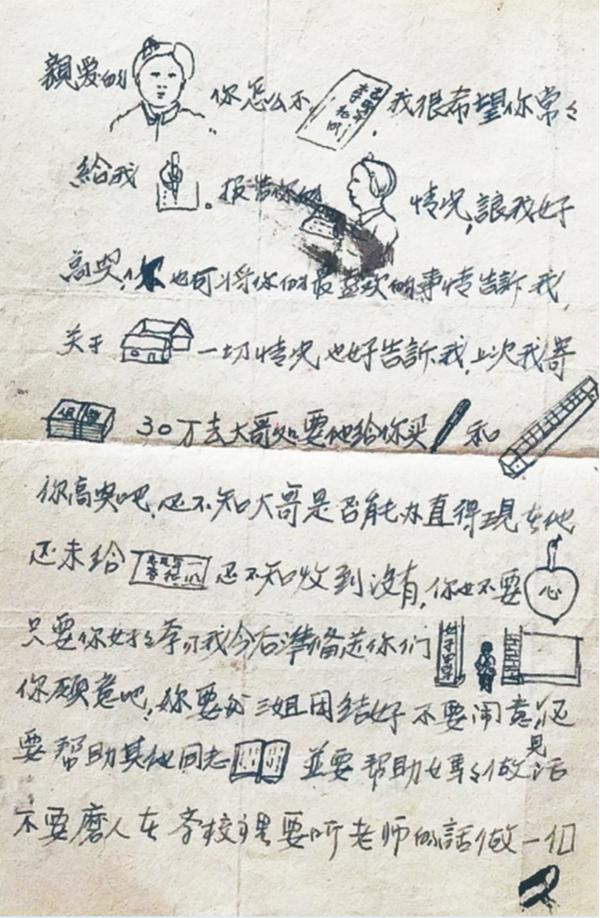 親爱的 你怎么不 我很希望你常々
給我 。报告你的 情况,讓我好
高兴,你也可将你们最喜欢的事情告訴我,
关于 一切情况也好告訴我,上次我寄
30万去大哥如要他给你买 和
你高兴吧,还不知大哥是否能办直得現在他
还未给 还不知收到没有,你也不要 心
只要你好好学习我今后準备送你们
你願意吧,你要和三姐团结好不要闹意见还
要帮助其他同志 並要帮助女馬々做活
不要磨人在学校里要听老师的話做一个